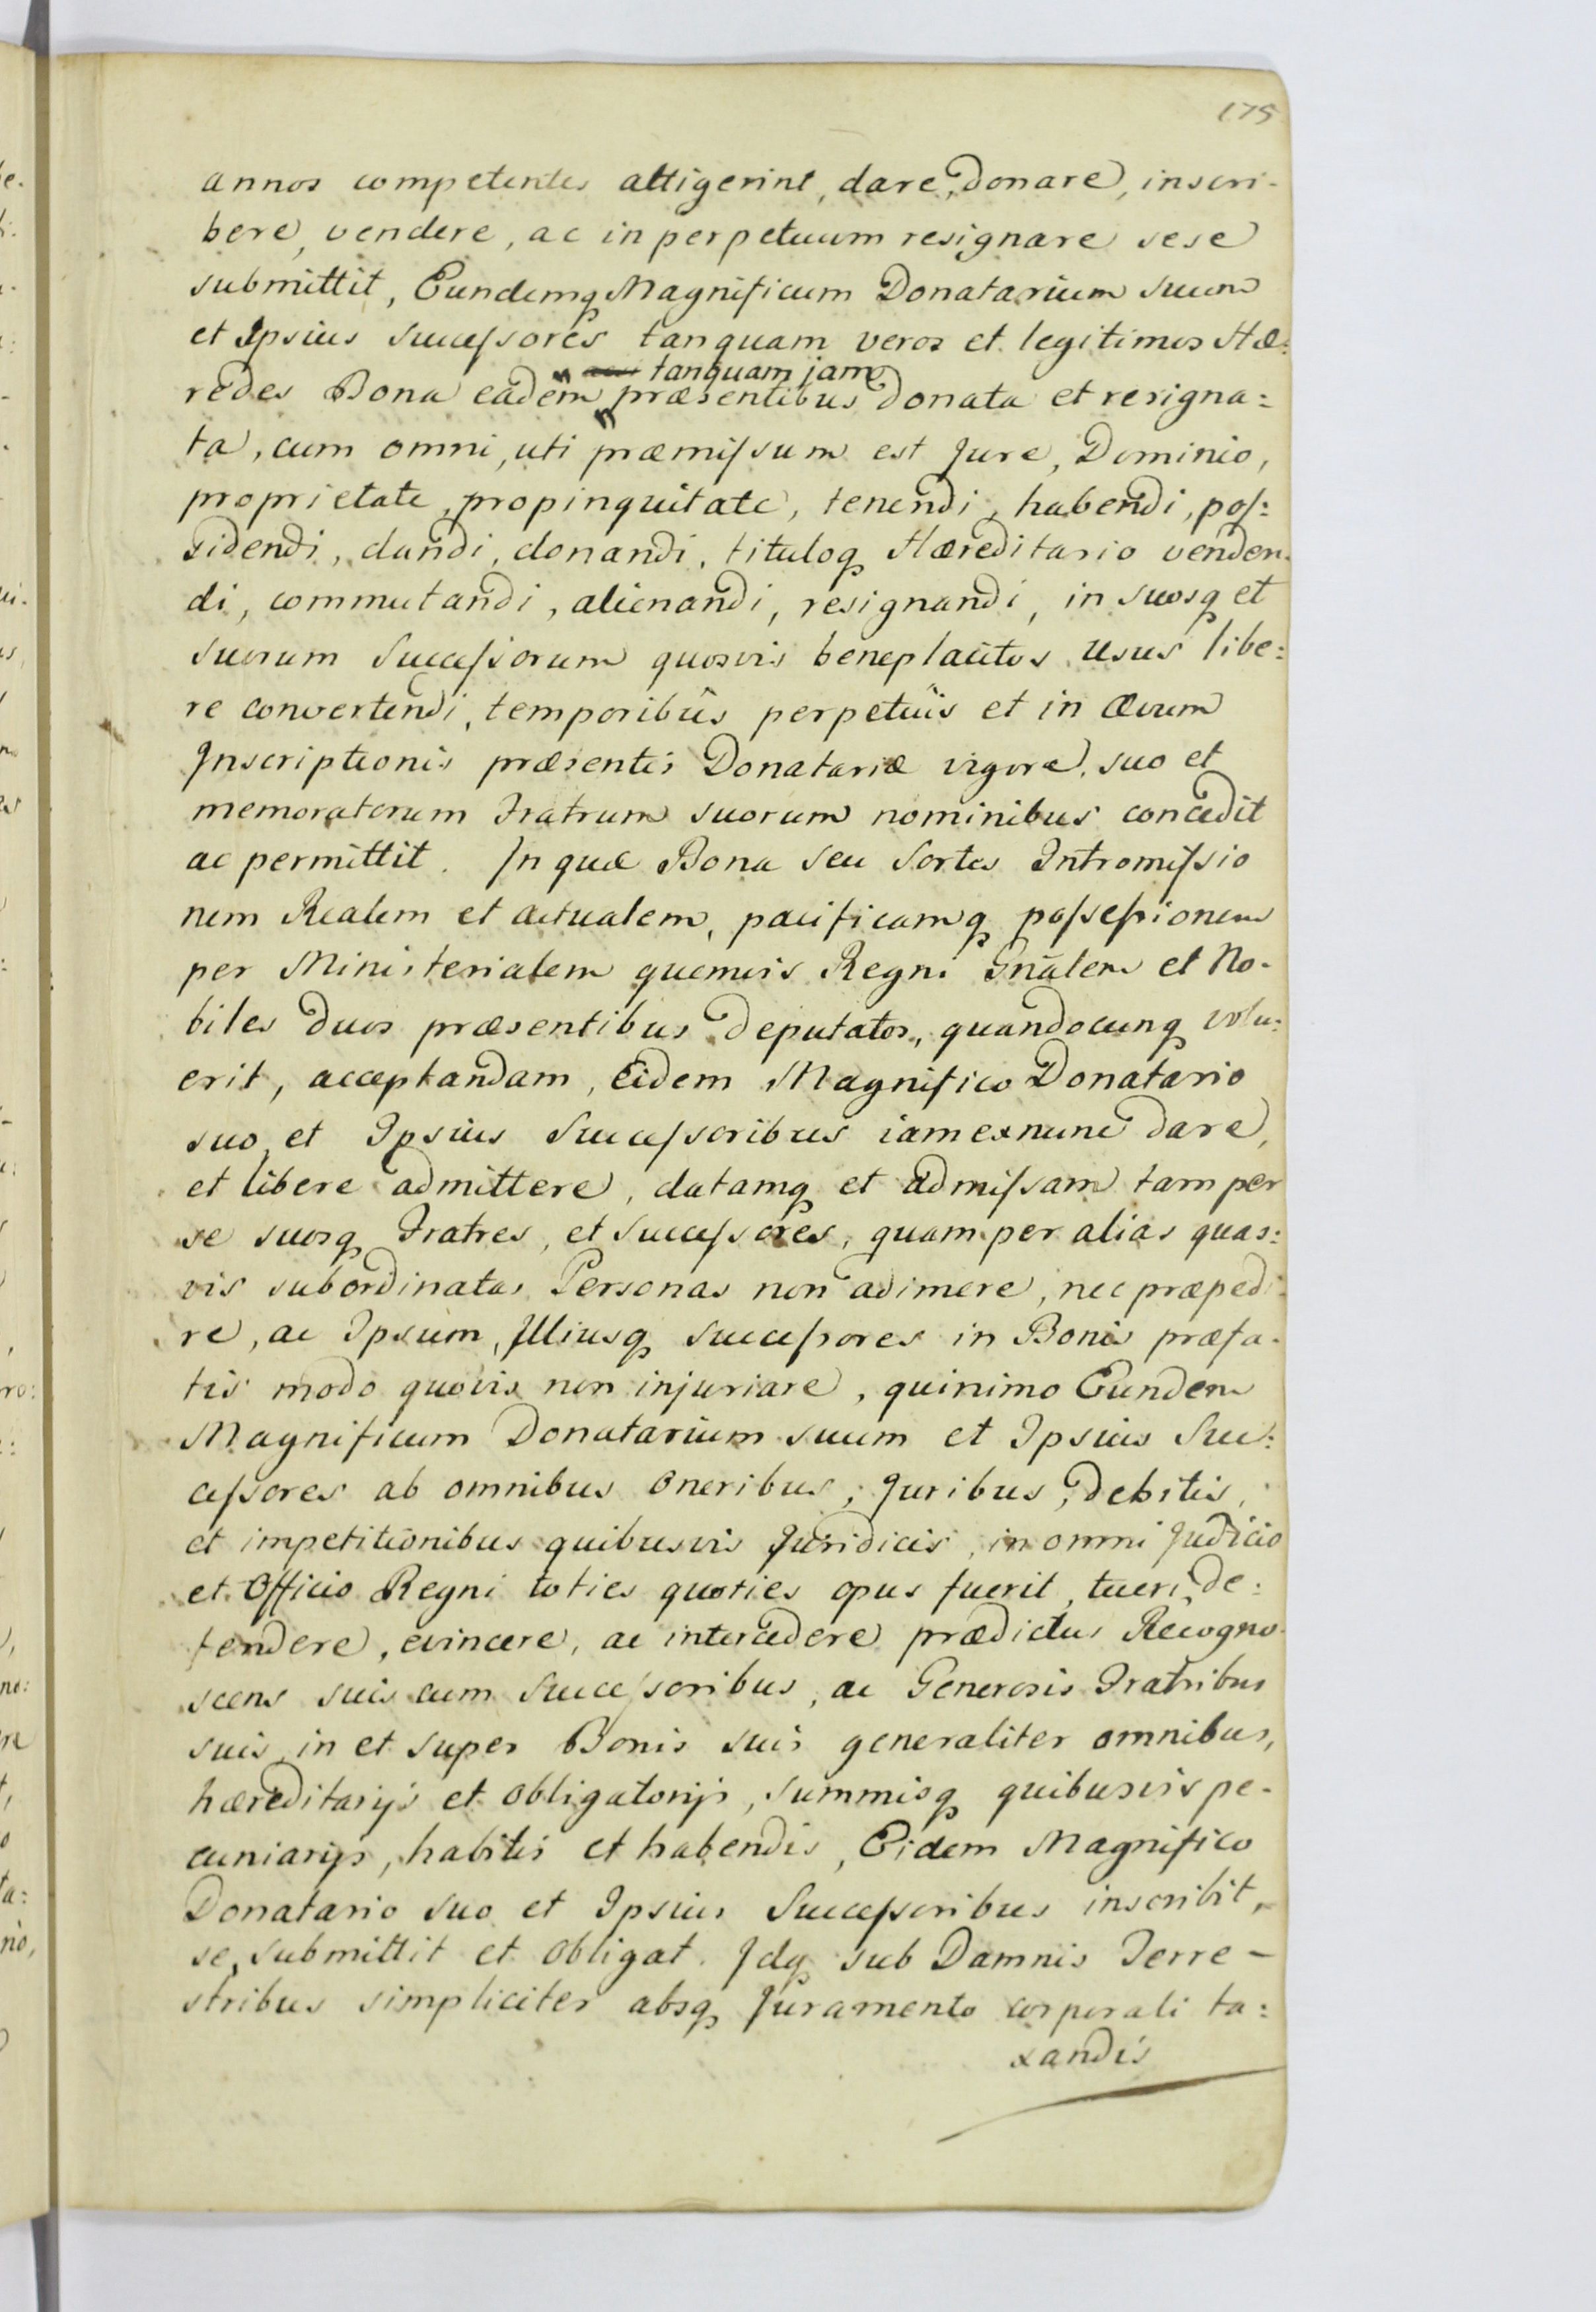 175
annos competentes attigerint, dare, donare, inscri-
bere, vendere, ac in perpetuum resignare sese
submittit, Eundemq Magnificum Donatarium suum
et Ipsius Succeſsores tanquam veros et legitimos Hæ:
tanquam jam
redes Bona eadem præsentibus donata et resigna:
ta, cum omni, uti præmiſsum est Jure, Dominio,
proprietate, propinquitate, tenendi, habendi, poſ:
sidendi, dandi, donandi, tituloq Hæreditario venden-
di, commutandi, alienandi, resignandi, in suosq et
suorum Succeſsorum quosvis beneplacitos usus libe:
re convertendi, temporibûs perpetuis et in ævum
Inscriptionis præsentis Donatariæ vigore, suo et
memoratorum Fratrum suorum nominibus concedit
ac permittit. In quæ Bona seu Sortes Intromiſsio
nem Realem et actualem, pacificamq poſseſsionem
per Ministerialem quemvis Regni Gnãlem et No-
biles duos præsentibus deputatos, quandocunq volu:
erit, acceptandam, Eidem Magnifico Donatario
suo, et Ipsius Succeſsoribus iamexnunc dare,
et libere admittere, datamq et admiſsam tam per
se suosq Fratres, et Succeſsores, quam per alias quas:
vis subordinatas Personas non adimere, nec præpedi:
re, ac Ipsum, Illiusq succeſsores in Bonis præfa-
tis modo quovis non injuriare, quinimo Eundem
Magnificum Donatarium suum et Ipsius Suc:
ceſsores ab omnibus oneribus, Juribus, debitis,
et impetitionibus quibusvis Juridicis, in omni Judicio
et Officio Regni toties quoties opus fuerit, tueri, de:
fendere, evincere, ac intercedere prædictus Recogno-
scens suis cum Succeſsoribus, ac Generosis Fratribus
suis, in et super Bonis suis generaliter omnibus,
hæreditarijs et obligatorijs, summisq quibusvis pe-
cuniarijs, habitis et habendis, Eidem Magnifico
Donatario suo et Ipsius Succeſsoribus inscribit,
se, submittit et obligat. Idq sub Damnis Terre-
stribus simpliciter absq Juramento corporali ta:
xandis